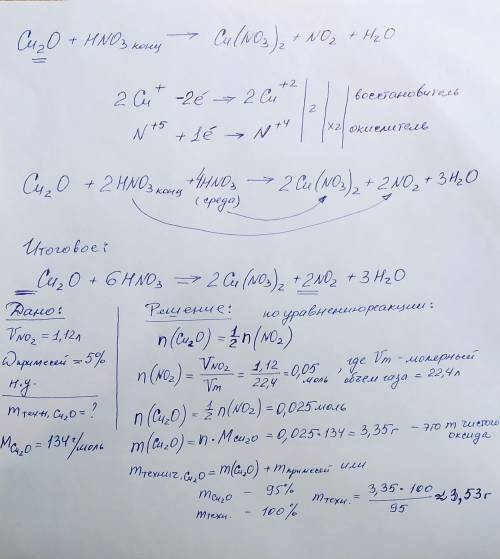 Cu₂O + HNO₃ конц → Cu(NO₃)₂ + NO₂ + H₂O
2Cu⁺ -2ē → 2Cu⁺² | 2 | | восстановитель
N⁺⁵ + 1ē → N⁺⁴ | | x2 | окислитель
Cu₂O + 2HNO₃ конц + 4HNO₃ → 2Cu(NO₃)₂ + 2NO₂ + 3H₂O
(среда)
Итоговое:
Cu₂O + 6HNO₃ = 2Cu(NO₃)₂ + 2NO₂ + 3H₂O
Дано:
V NO₂ = 1,12л
ω примесей = 5%
н.у.
m техн. Cu₂O = ?
M Cu₂O = 134 г/моль
Решение: по уравнению реакции:
n(Cu₂O) = 1/2 n(NO₂)
n(NO₂) = V NO₂/Vm = 1,12/22,4 = 0,05 моль, где Vm - молярный
объем газа = 22,4л
n(Cu₂O) = 1/2 n(NO₂) = 0,025 моль
m(Cu₂O) = n · M Cu₂O = 0,025 · 134 = 3,35г - это m чистого
оксида
m технич. Cu₂O = m(Cu₂O) + m примесей или
m Cu₂O - 95%
m техн. - 100%
m техн. = 3,35 · 100/95 ≈ 3,53г